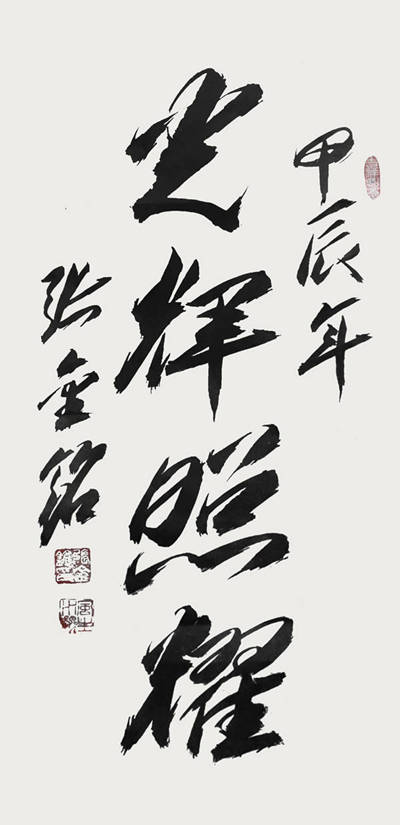 甲辰年
光辉照耀
张金铭